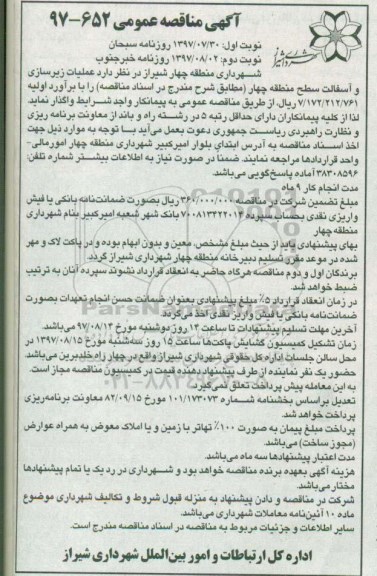 آگهی مناقصه عمومی ۶۵۲-۹۷
نوبت اول: ۱۳۹۷/۰۷/۳۰ روزنامه سبحان
نوبت دوم: ۱۳۹۷/۰۸/۰۲ روزنامه خبرجنوب
شهرداری شیراز
شهرداری منطقه چهار شیراز در نظر دارد عملیات زیرسازی
و آسفالت سطح منطقه چهار (مطابق شرح مندرج در اسناد مناقصه) را با برآورد اولیه
۷/۱۷۲/۲۱۲/۷۶۱ ریال، از طریق مناقصه عمومی به پیمانکار واجد شرایط واگذار نماید
لذا از کلیه پیمانکاران دارای حداقل رتبه ۵ در رشته راه و باند از معاونت برنامه ریزی
و نظارت راهبردی ریاست جمهوری دعوت بعمل می‌آید تا توجه به موارد ذیل جهت
اخذ اسناد مناقصه به آدرس ابتدای بلوار امیرکبیر شهرداری منطقه چهار امورمالی-
واحد قراردادها مراجعه نمایند. ضمناً در صورت نیاز به اطلاعات بیشتر شماره تلفن:
۳۸۳۰۸۵۹۶ آماده پاسخ‌گویی می‌باشد.
مدت انجام کار ۹ ماه
مبلغ تضمین شرکت در مناقصه ۳۶۰/۰۰۰/۰۰۰ ریال بصورت ضمانت‌نامه بانکی یا فیش
واریزی نقدی بحساب سپرده ۷۰۰۸۱۳۴۲۲۰۱۴ بانک شهر شعبه امیرکبیر بنام شهرداری
منطقه چهار
بهای پیشنهادی باید از حیث مبلغ مشخص، معین و بدون ابهام بوده و در پاکت لاک و مهر
شده در موعد مقرر تسلیم دبیرخانه منطقه چهار شهرداری شیراز گردد.
برندگان اول و دوم مناقصه هرگاه حاضر به انعقاد قرارداد نشوند سپرده آنان به ترتیب
ضبط خواهد شد.
در زمان انعقاد قرارداد ۵٪ مبلغ پیشنهادی بعنوان ضمانت حسن انجام تعهدات بصورت
ضمانت‌نامه بانکی یا فیش واریز نقدی اخذ می‌گردد.
آخرین مهلت تسلیم پیشنهادات تا ساعت ۱۴ روز دوشنبه مورخ ۹۷/۰۸/۱۴ می‌باشد.
زمان تشکیل کمیسیون گشایش پاکت‌ها ساعت ۱۵ روز سه‌شنبه مورخ ۱۳۹۷/۰۸/۱۵ در
محل سالن جلسات اداره کل حقوقی شهرداری شیراز واقع در چهار راه خلدبرین می‌باشد.
حضور یک نفر نماینده از طرف پیشنهاد دهنده قیمت در کمیسیون مناقصه مجاز است.
به این معامله پیش پرداخت تعلق نمی‌گیرد.
تعدیل براساس بخشنامه شماره ۱۰۱/۱۷۳۰۷۳ مورخ ۸۲/۰۹/۱۵ معاونت برنامه‌ریزی
پرداخت خواهد شد.
پرداخت مبلغ پیمان به صورت ۱۰۰٪ تهاتر با زمین و یا املاک معوض به همراه عوارض
(مجوز ساخت) می‌باشد.
مدت اعتبار پیشنهادها سه ماه می‌باشد.
هزینه آگهی بعهده برنده مناقصه خواهد بود و شهرداری در رد یک یا تمام پیشنهادها
مختار می‌باشد.
شرکت در مناقصه و دادن پیشنهاد به منزله قبول شروط و تکالیف شهرداری موضوع
ماده ۱۰ آئین‌نامه معاملات شهرداری می‌باشد.
سایر اطلاعات و جزئیات مربوط به مناقصه در اسناد مناقصه مندرج است.
اداره کل ارتباطات و امور بین‌الملل شهرداری شیراز